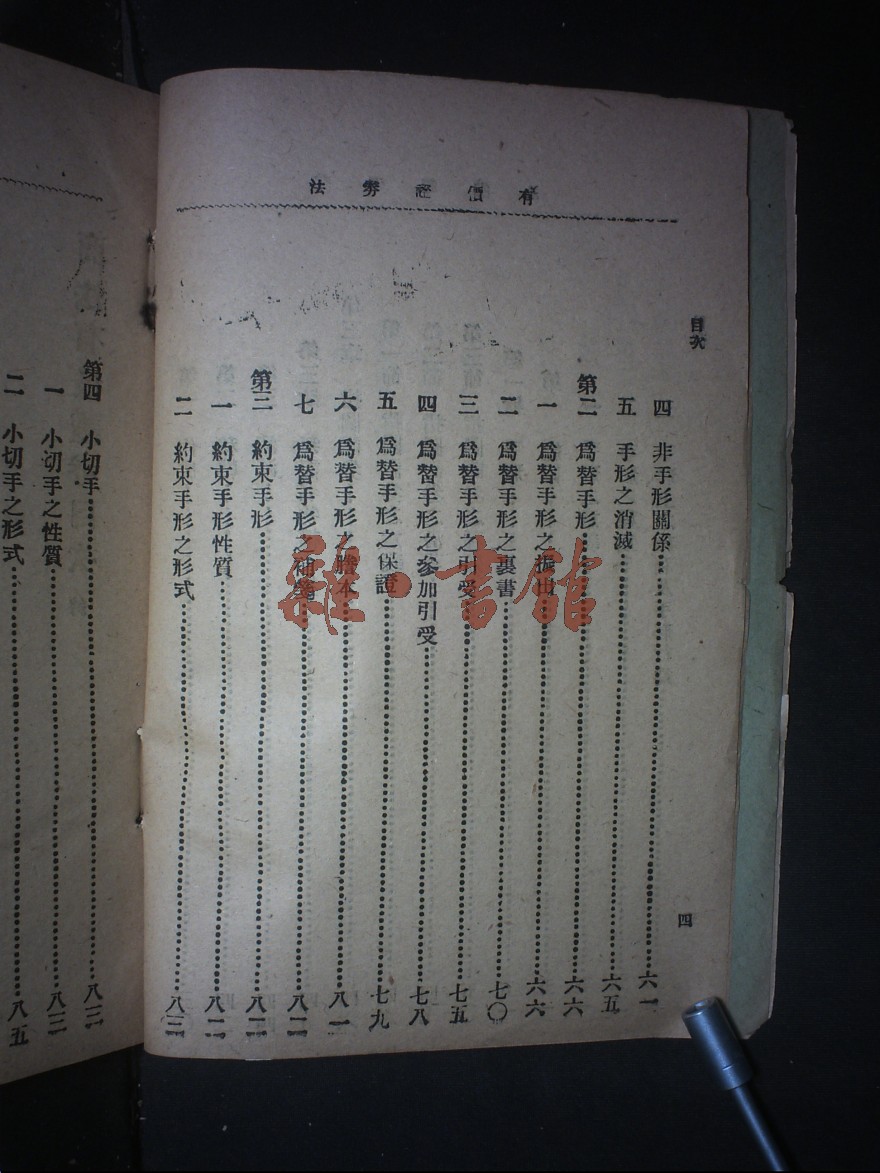 有價證券法
目次
四 非手形關係 六一
五 手形之消滅 六五
第二 爲替手形 六六
一 爲替手形之振出 六六
二 爲替手形之裏書 七〇
三 爲替手形之引受 七五
四 爲替手形之參加引受 七八
五 爲替手形之保證 七九
六 爲替手形之謄本 八一
七 爲替手形之補箋 八二
第三 約束手形 八二
一 約束手形性質 八二
二 約束手形之形式 八三
四
第四 小切手 八三
一 小切手之性質 八三
二 小切手之形式 八五
雜·書館